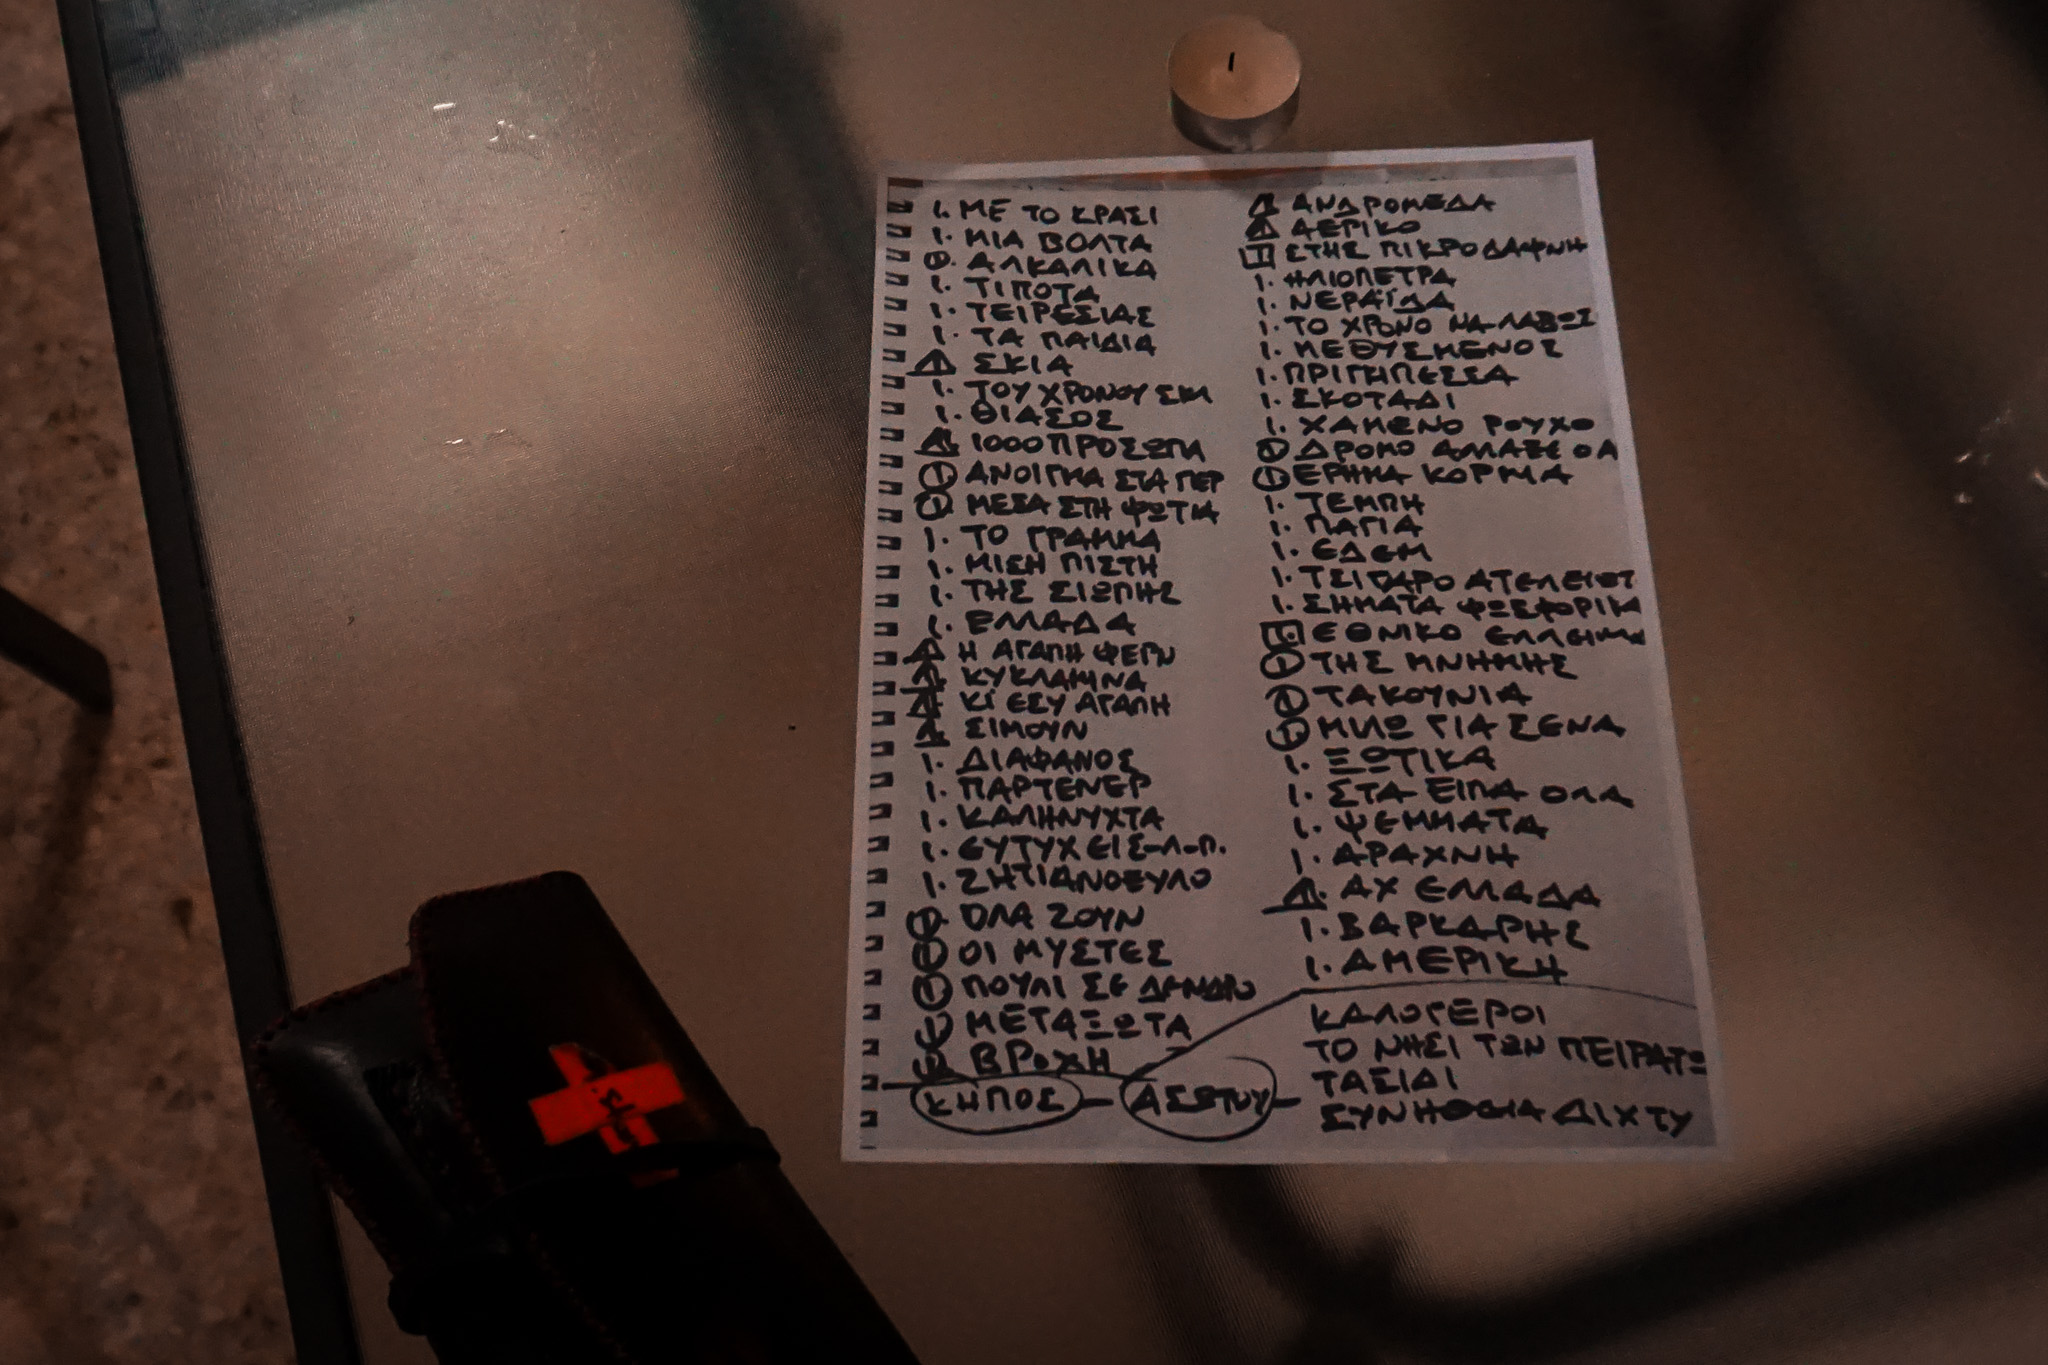 1. ΜΕ ΤΟ ΚΡΑΣΙ
1. ΜΙΑ ΒΟΛΤΑ
1. ΑΛΚΑΛΙΚΑ
1. ΤΙΠΟΤΑ
1. ΤΕΙΡΕΣΙΑΣ
1. ΤΑ ΠΑΙΔΙΑ
1 ΣΚΙΑ
1. ΤΟΥ ΧΡΟΝΟΥ
1. ΘΙΑΣΟΣ
1. 1000 ΠΡΟΣΩΠΑ
1. ΑΝΟΙΓΜΑ ΣΤΑ ΠΕΡ
1. ΜΕΣΑ ΣΤΗ ΦΩΤΙΑ
1. ΤΟ ΓΡΑΜΜΑ
1. ΜΙΣΗ ΠΙΣΤΗ
1. ΤΗΣ ΣΙΩΠΗΣ
1. ΕΛΛΑΔΑ
1. Η ΑΓΑΠΗ ΦΕΡΝ
1. ΚΥΚΛΑΜΙΝΑ
1. ΚΙ ΕΣΥ ΑΓΑΠΗ
1. ΣΙΜΟΥΝ
1. ΔΙΑΦΑΝΟΣ
1. ΠΑΡΤΕΝΕΡ
1. ΚΑΛΗΝΥΧΤΑ
1. ΕΥΤΥΧΕΙΣ-Λ-Π.
1. ΖΗΤΙΑΝΟΞΥΛΟ
1. ΟΛΑ ΖΟΥΝ
1. ΟΙ ΜΥΣΤΕΣ
1. ΠΟΥΛΙ ΣΕ ΔΕΝΔΡΟ
1. ΜΕΤΑΞΩΤΑ
1. ΒΡΟΧΗ
ΚΗΠΟΣ - ΑΣΩΤΟΥ -
1. ΑΝΔΡΟΜΕΔΑ
1. ΑΕΡΙΚΟ
1. ΣΤΗΣ ΠΙΚΡΟΔΑΦΝΗ
1. ΗΛΙΟΠΕΤΡΑ
1. ΝΕΡΑΪΔΑ
1. ΤΟ ΧΡΟΝΟ ΝΑ ΛΑΒΩΣ
1. ΜΕΘΥΣΜΕΝΟΣ
1. ΠΡΙΓΚΗΠΕΣΣΑ
1. ΣΚΟΤΑΔΙ
1. ΧΑΜΕΝΟ ΡΟΥΧΟ
1. ΔΡΟΜΟ ΑΛΛΑΞΕ Ο Α
1. ΕΡΗΜΑ ΚΟΡΜΙΑ
1. ΤΕΜΠΗ
1. ΠΑΓΙΑ
1. ΕΔΕΜ
1. ΤΣΙΓΑΡΟ ΑΤΕΛΕΙΩΤ
1. ΣΗΜΑΤΑ ΦΩΣΦΟΡΙΚΑ
1. ΕΘΝΙΚΟ ΕΛΛΕΙΜΜ
1. ΤΗΣ ΜΝΗΜΗΣ
1. ΤΑΚΟΥΝΙΑ
1. ΜΙΛΩ ΓΙΑ ΣΕΝΑ
1. ΞΩΤΙΚΑ
1. ΣΤΑ ΕΙΠΑ ΟΛΑ
1. ΨΕΜΜΑΤΑ
1. ΑΡΑΧΝΗ
1. ΑΧ ΕΛΛΑΔΑ
1. ΒΑΡΚΑΡΗΣ
1. ΑΜΕΡΙΚΗ
ΚΑΛΟΓΕΡΟΙ
ΤΟ ΝΗΣΙ ΤΩΝ ΠΕΙΡΑΤΩ
ΤΑΞΙΔΙ
ΣΥΝΗΘΕΙΑ ΔΙΧΤΥ